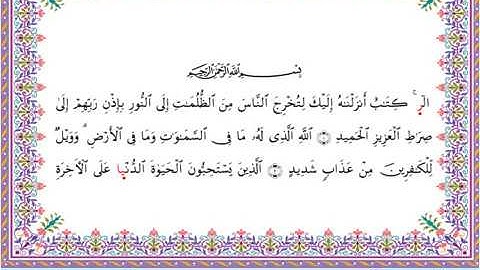 بِسْمِ ٱللَّهِ ٱلرَّحْمَٰنِ ٱلرَّحِيمِ
الٓر ۚ كِتَٰبٌ أَنزَلْنَٰهُ إِلَيْكَ لِتُخْرِجَ ٱلنَّاسَ مِنَ ٱلظُّلُمَٰتِ إِلَى ٱلنُّورِ بِإِذْنِ رَبِّهِمْ إِلَىٰ
صِرَٰطِ ٱلْعَزِيزِ ٱلْحَمِيدِ ۝١ ٱللَّهِ ٱلَّذِى لَهُۥ مَا فِى ٱلسَّمَٰوَٰتِ وَمَا فِى ٱلْأَرْضِ ۗ وَوَيْلٌ
لِّلْكَٰفِرِينَ مِنْ عَذَابٍ شَدِيدٍ ۝٢ ٱلَّذِينَ يَسْتَحِبُّونَ ٱلْحَيَوٰةَ ٱلدُّنْيَا عَلَى ٱلْءَاخِرَةِ